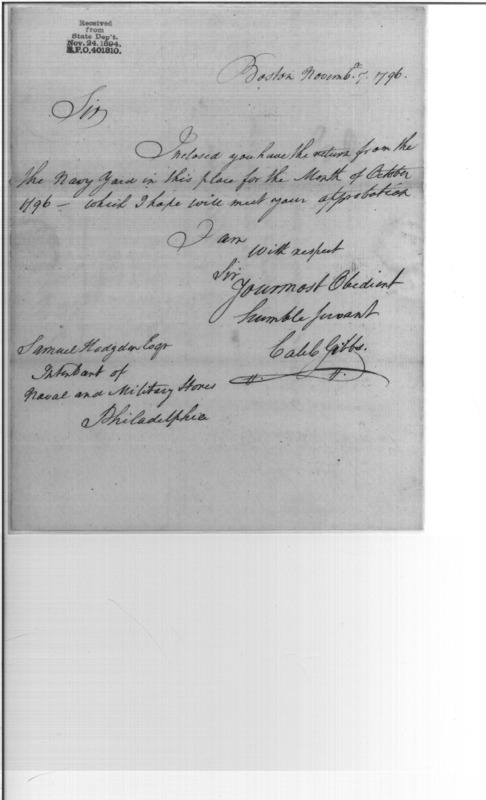 Received
from
State Dep't.
Nov. 24. 1894.
R.P.O, 401810.
Boston Novembr. 7. 1796.
Sir
Inclosed you have the return from the
the Navy Yard in this place for the Month of October
1796 — which I hope will meet your approbation
I am
with respect
Sir
Your most Obedient
humble Servant
Caleb Gibbs.
Samuel Hodgdon Esqr
Intendant of
Naval and Military Stores
Philadelphia